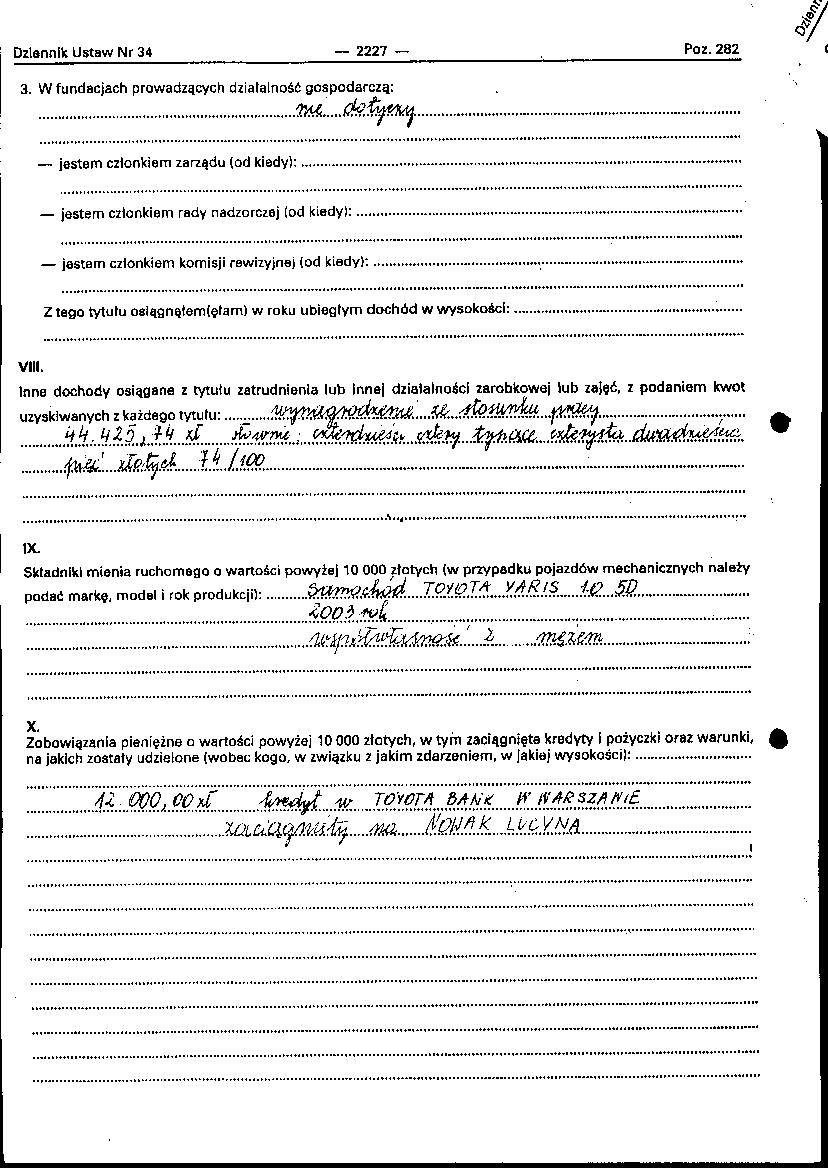 Dziennik Ustaw Nr 34 — 2227 — Poz. 282
3. W fundacjach prowadzących działalność gospodarczą:
nie dotyczy
— jestem członkiem zarządu (od kiedy):
— jestem członkiem rady nadzorczej (od kiedy):
— jestem członkiem komisji rewizyjnej (od kiedy):
Z tego tytułu osiągnąłem(ęłam) w roku ubiegłym dochód w wysokości:
VIII.
Inne dochody osiągane z tytułu zatrudnienia lub innej działalności zarobkowej lub zajęć, z podaniem kwot
uzyskiwanych z każdego tytułu: wynagrodzenie ze stosunku pracy
44.425,74 zł słownie: czterdzieści cztery tysiące czterysta dwadzieścia
pięć złotych 74/100
IX.
Składniki mienia ruchomego o wartości powyżej 10 000 złotych (w przypadku pojazdów mechanicznych należy
podać markę, model i rok produkcji): Samochód TOYOTA YARIS 1.0 5D
2003 rok
współwłasność z mężem
X.
Zobowiązania pieniężne o wartości powyżej 10 000 złotych, w tym zaciągnięte kredyty i pożyczki oraz warunki,
na jakich zostały udzielone (wobec kogo, w związku z jakim zdarzeniem, w jakiej wysokości):
12 000,00 zł kredyt w TOYOTA BANK W WARSZAWIE
zaciągnięty na NOWAK LUCYNA